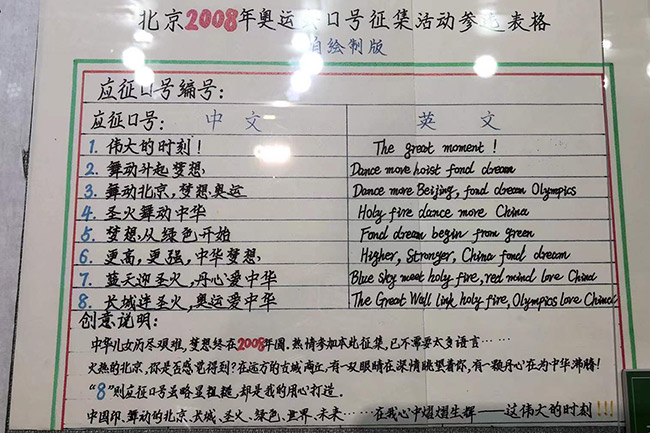 北京2008年奥运会口号征集活动参选表格
自绘制版
应征口号编号:
应征口号: 中文 英文
1. 伟大的时刻! The great moment!
2. 舞动斗起梦想 Dance move hoist fond dream
3. 舞动北京,梦想奥运 Dance more Beijing, fond dream Olympics
4. 圣火舞动中华 Holy fire dance move China
5. 梦想从绿色开始 Fond dream begin from green
6. 更高,更强,中华梦想 Higher, Stronger, China fond dream
7. 蓝天迎圣火,丹心爱中华 Blue Sky meet holy fire, red mind love China
8. 长城连圣火,奥运爱中华 The Great Wall link holy fire, Olympics love China
创意说明:
中华儿女历尽艰难,梦想终在2008年圆。热情参加本此征集,已不需要太多语言……
火热的北京,你是否感觉得到?在远方的古城商丘,有一双眼睛在深情眺望着你,有一颗丹心在为中华沸腾!
“8”则应征口号虽略显粗糙,却是我的用心打造。
中国印、舞动的北京、长城、圣火、绿色、世界、未来……在我心中熠熠生辉——这伟大的时刻!!!